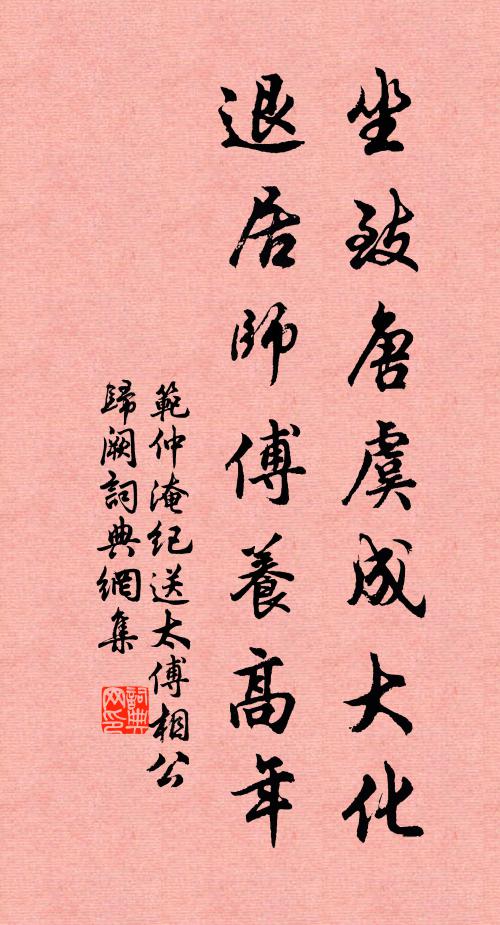 坐致唐虞成大化
退居師傅養高年
範仲淹紀送太傅相公
歸闕詞典網集
詞典
网印